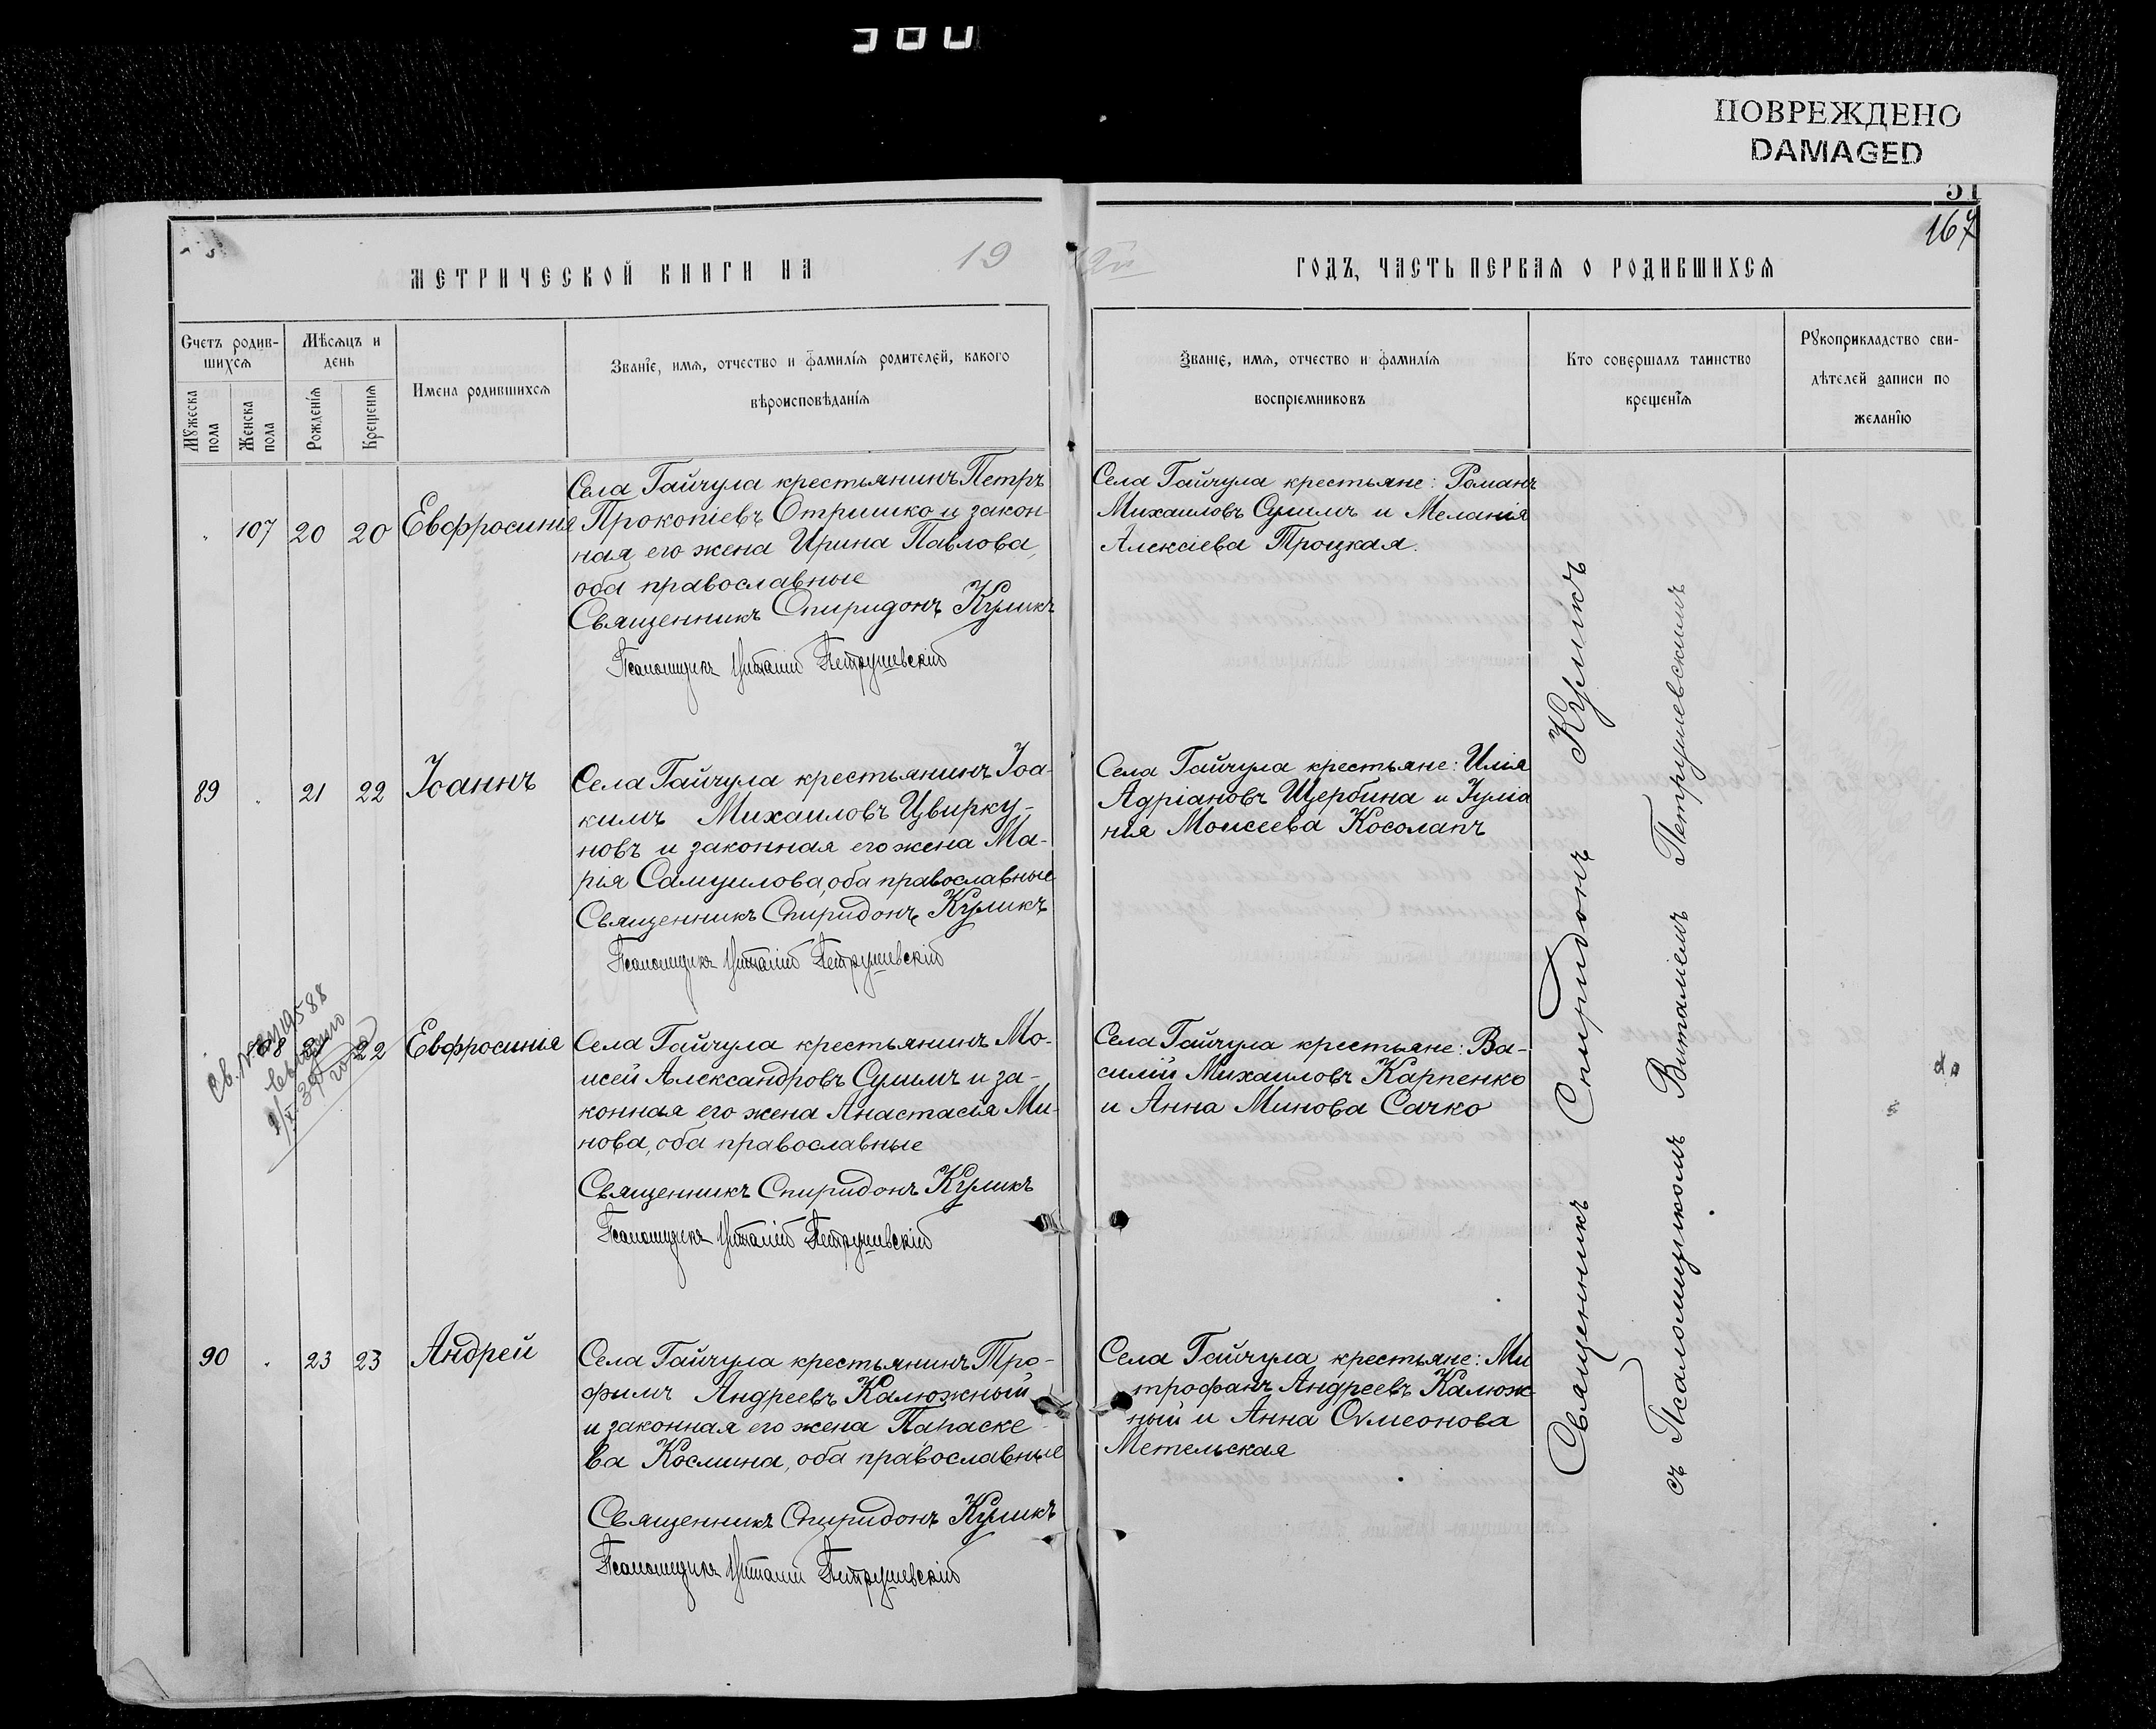 ПОВРЕЖДЕНО
DAMAGED
51
167
МЕТРИЧЕСКОЙ КНИГИ НА 19
ГОДЪ, ЧАСТЬ ПЕРВАЯ О РОДИВШИХСЯ
Счетъ родив-
шихся
Мꙋжеска
пола
Женска
пола
Мѣсяцъ и
день
Рожденїя
Крещенїя
Имена родившихся
Званїе, имя, отчество и фамилїя родителей, какого
вѣроисповѣданїя
Званїе, имя, отчество и фамилїя
воспрїемниковъ
Кто совершалъ таинство
крещенїя
Рꙋкоприкладство сви-
дѣтелей записи по
желанїю
107 20 20 Евфросинія
Села Гайчула крестьянинъ Петръ
Прокопіевъ Отришко и закон-
ная его жена Ирина Павлова,
оба православные
Священникъ Спиридонъ Куликъ
Псаломщикъ Виталій Петрушевскій
Села Гайчула крестьяне: Романъ
Михаиловъ Сушимъ и Меланія
Алексіева Троцкая.
89 21 22 Іоаннъ
Села Гайчула крестьянинъ Іоа-
кимъ Михаиловъ Цвирку-
новъ и законная его жена Ма-
рія Самуилова, оба православные
Священникъ Спиридонъ Куликъ
Псаломщикъ Виталій Петрушевскій
Села Гайчула крестьяне: Илія
Адріановъ Щербина и Іуліа
нія Моисеева Косолапъ
22 Евфросинія
Села Гайчула крестьянинъ Мо-
исей Александровъ Сушимъ и за-
конная его жена Анастасія Ми-
нова, оба православные
Священникъ Спиридонъ Куликъ
Псаломщикъ Виталій Петрушевскій
Села Гайчула крестьяне: Ва-
силій Михаиловъ Карпенко
и Анна Минова Сачко
90 23 23 Андрей
Села Гайчула крестьянинъ Тро-
фимъ Андреевъ Калюжный
и законная его жена Параске-
ва Космина, оба православные
Священникъ Спиридонъ Куликъ
Псаломщикъ Виталій Петрушевскій
Села Гайчула крестьяне: Ми
трофанъ Андреевъ Калюж-
ный и Анна Сѵмеонова
Метельская
Священникъ Спиридонъ Куликъ
съ Псаломщикомъ Виталіемъ Петрушевскимъ